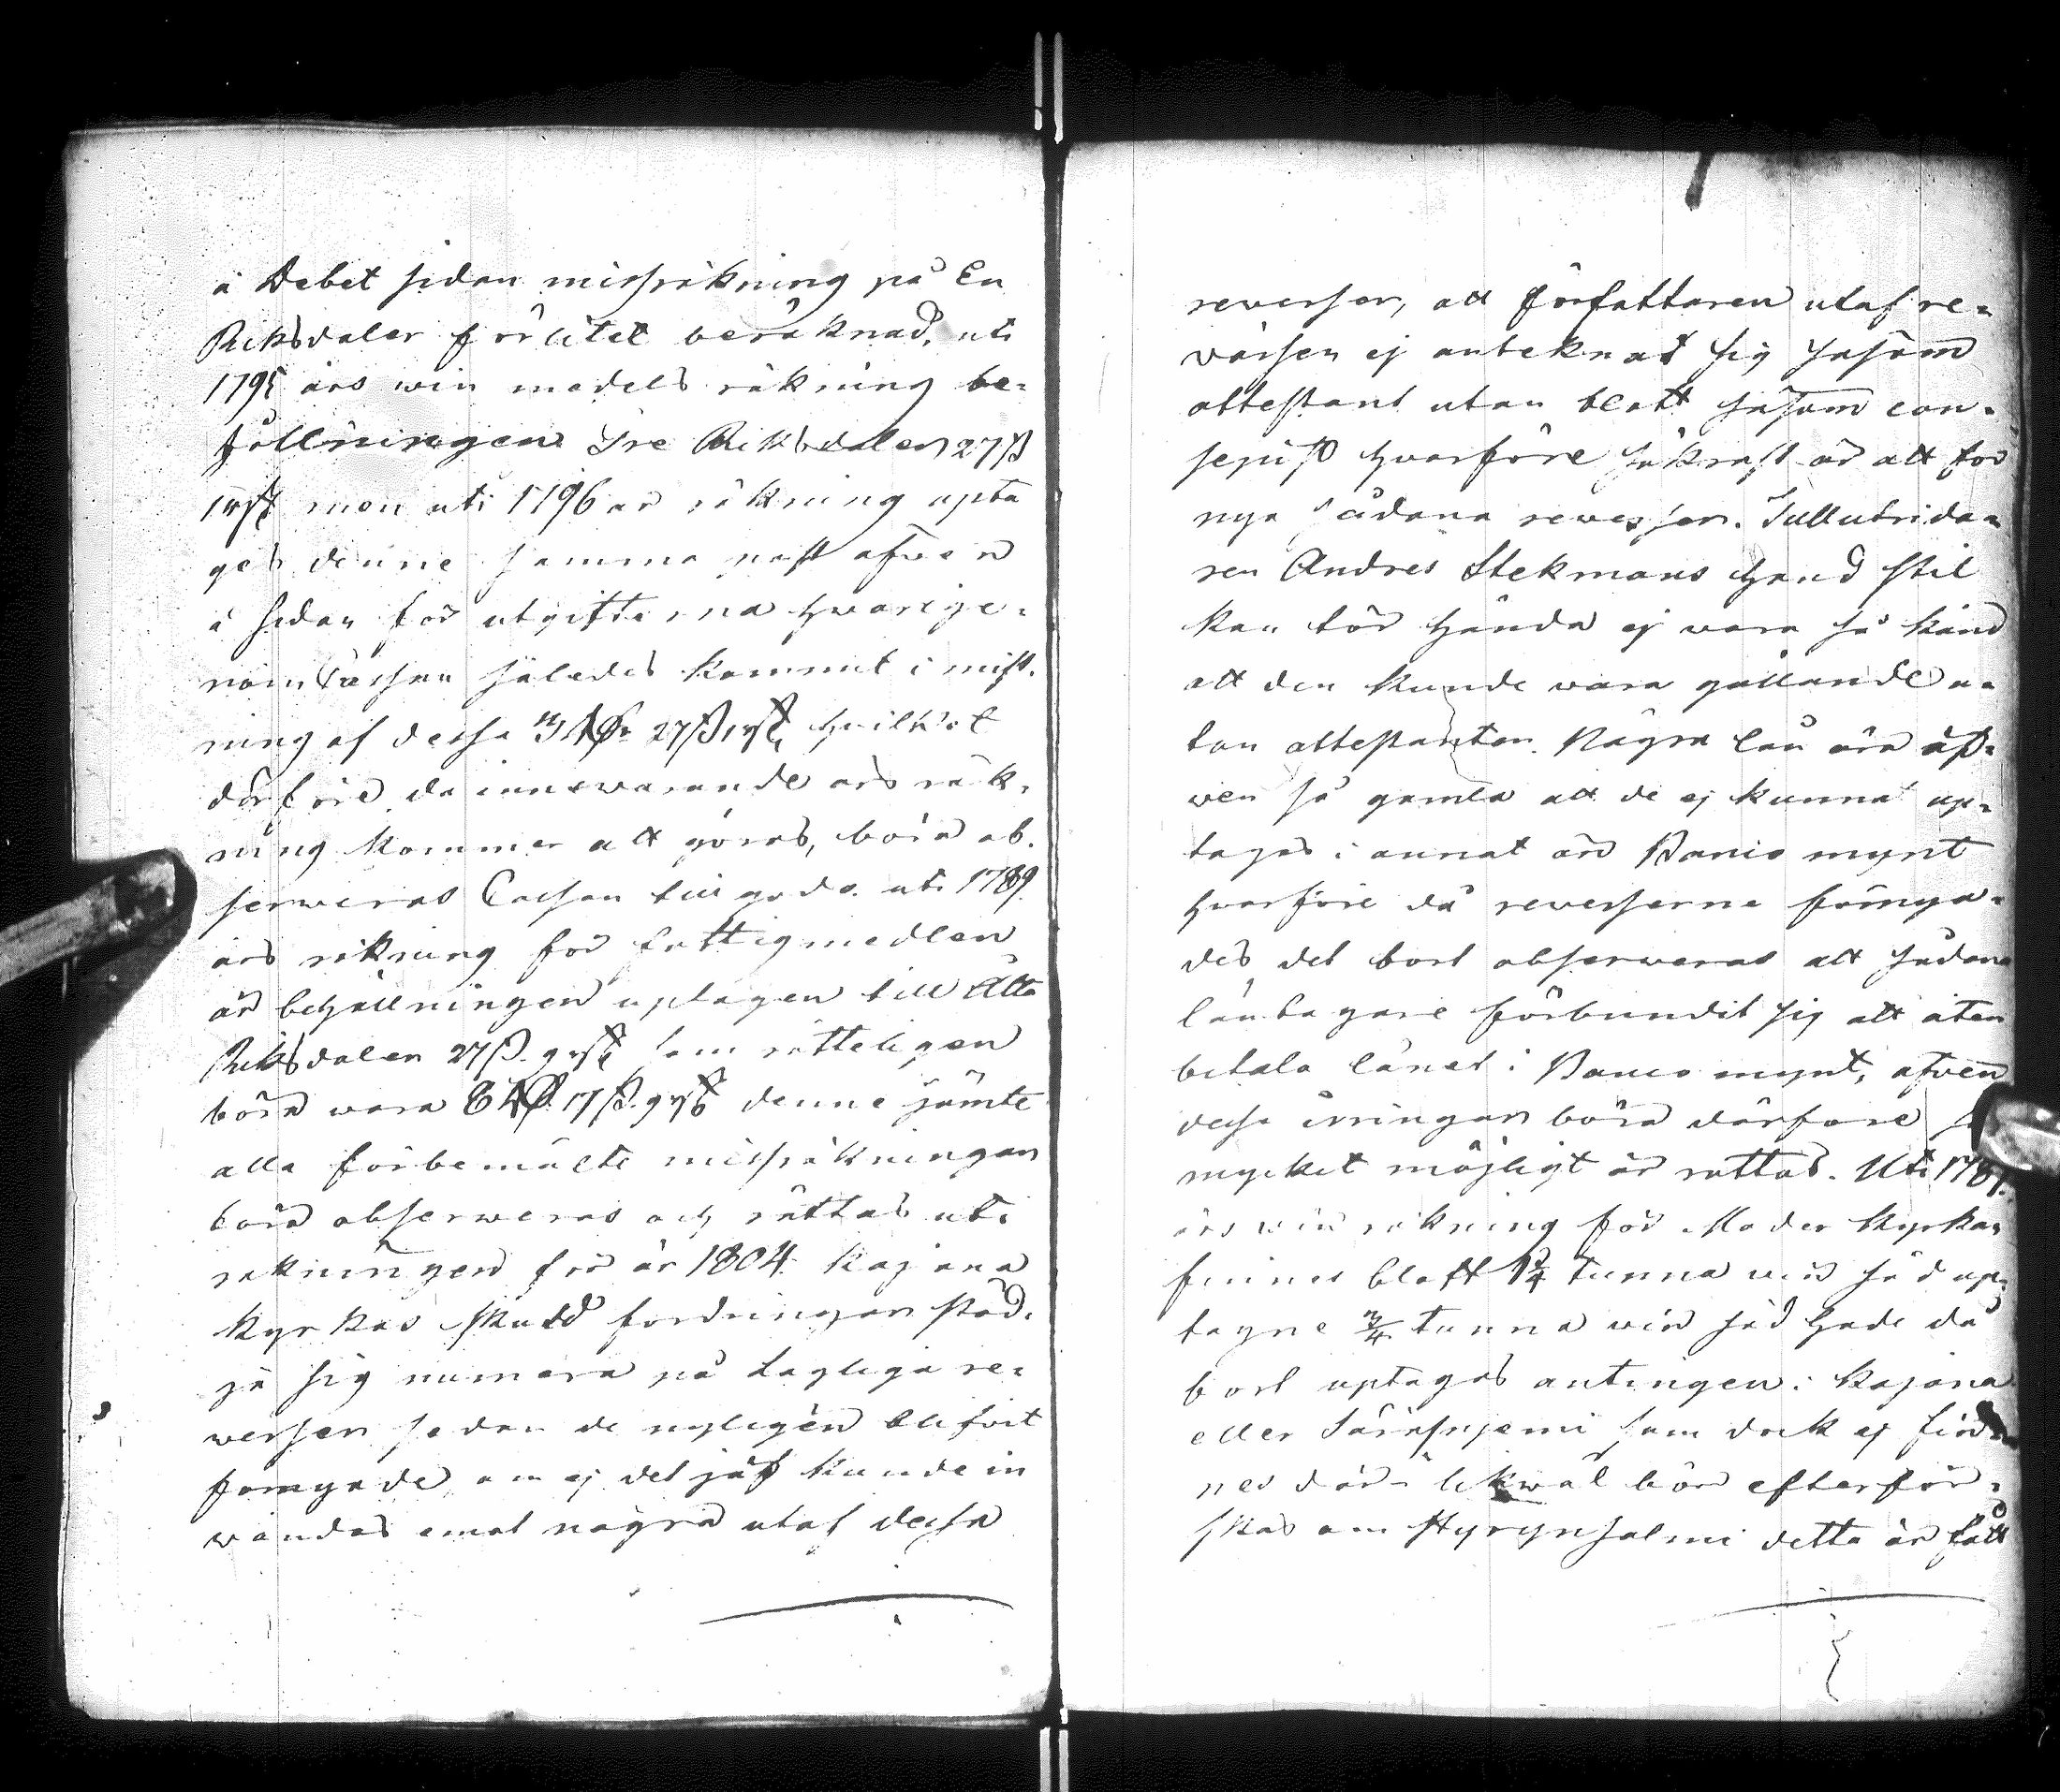 å Debet sidan missräkning på En
Riksdaler förlitet beräknad, uti
1795 års win medels räkning be-
hållningen Tre Riksdaler 27 ß
1 rst men uti 1796 ars räkning upta
ges denne samma post äfven
å sidan för utgifterna hwarige-
nom Cassan således kommit i mist-
ning af dessa 3 Rdr 27 ß 1 rst, hwilket
därföre då innewarande års räk-
ning kommer att göras, böra ob-
serweras Cassan till godo. uti 1789
års räkning för fattigmedlen
är behållningen uptagen till Åtta
Riksdaler 27 ß. 9 rst som rätteligen
böra wara 8 Rdr. 17 ß. 9 rst denne jämte
alla förbemälte missräkningar
böra observeras och rättas uti
räkningen för år 1804. Kajana
kyrkas skuld fordringar städ-
ja sig numera på lagliga re-
werser sedan de nyligen blifvit
förnyade, om ej det jäf kunde in
wändas emot några utaf dessa
reverser, att författaren utaf re-
värsen ej anteknat sig såsom
attestant utan blott såsom con-
sepist hwarföre säkrast är att för
nya sådana reverser. Tullutrida-
ren Anders Stekmans hand stil
kan tör hända ej wara så känd
att den kunde wara gällande u-
tan attestanter. Några lån ära äf-
wen så gamla att de ej kunnat up-
tagas i annat än Banco mynt
hvarföre då reverserne förnya-
des det bort observeras att sådane
låntagare förbundit sig att åter
betala lånet i Banco mynt, äfven
dessa irringar böra därföre så
mycket möjligt är rättas. Uti 1787.
års win räkning för Moder kyrkan
finnes blott 1 3/4 tunna win säd up-
tagne 3/4 tunna win säd hade då
bort uptagas antingen i Kajana
eller Säräisniemi som dock ej fin-
nes där likwäl bör efterfor-
skas om Hyrynsalmi detta år fått